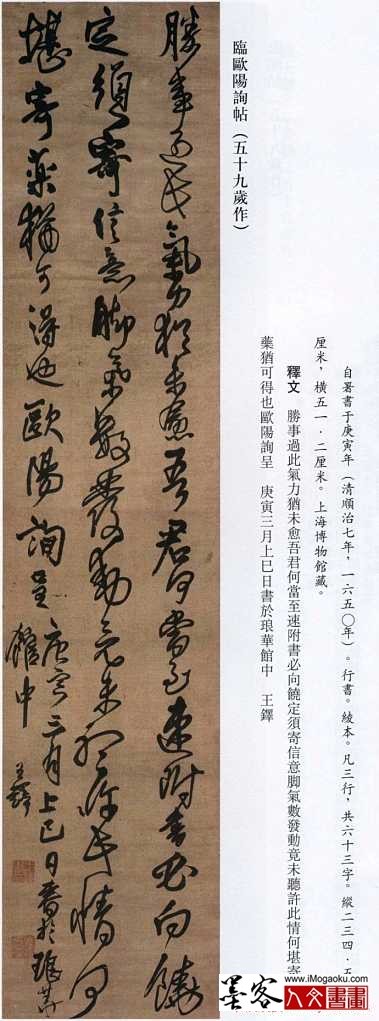 自署書于庚寅年（清順治七年，一六五〇年）。行書。綾本。凡三行，共六十三字。縱二三四·五
厘米，橫五一·二厘米。上海博物館藏。
釋文　勝事過此氣力猶未愈吾君何當至速附書必向饒定須寄信意脚氣數發動竟未聽許此情何堪寄
藥猶可得也歐陽詢呈　庚寅三月上巳日書於琅華館中　王鐸
臨歐陽詢帖（五十九歲作）
勝事過此氣力猶未愈吾君何當至速附書必向饒
定須寄信意脚氣數發動竟未聽許此情何
堪寄藥猶可得也歐陽詢呈庚寅三月上巳日書於琅華
館中 王鐸
www.iMogaoku.com
墨客
人文書畫